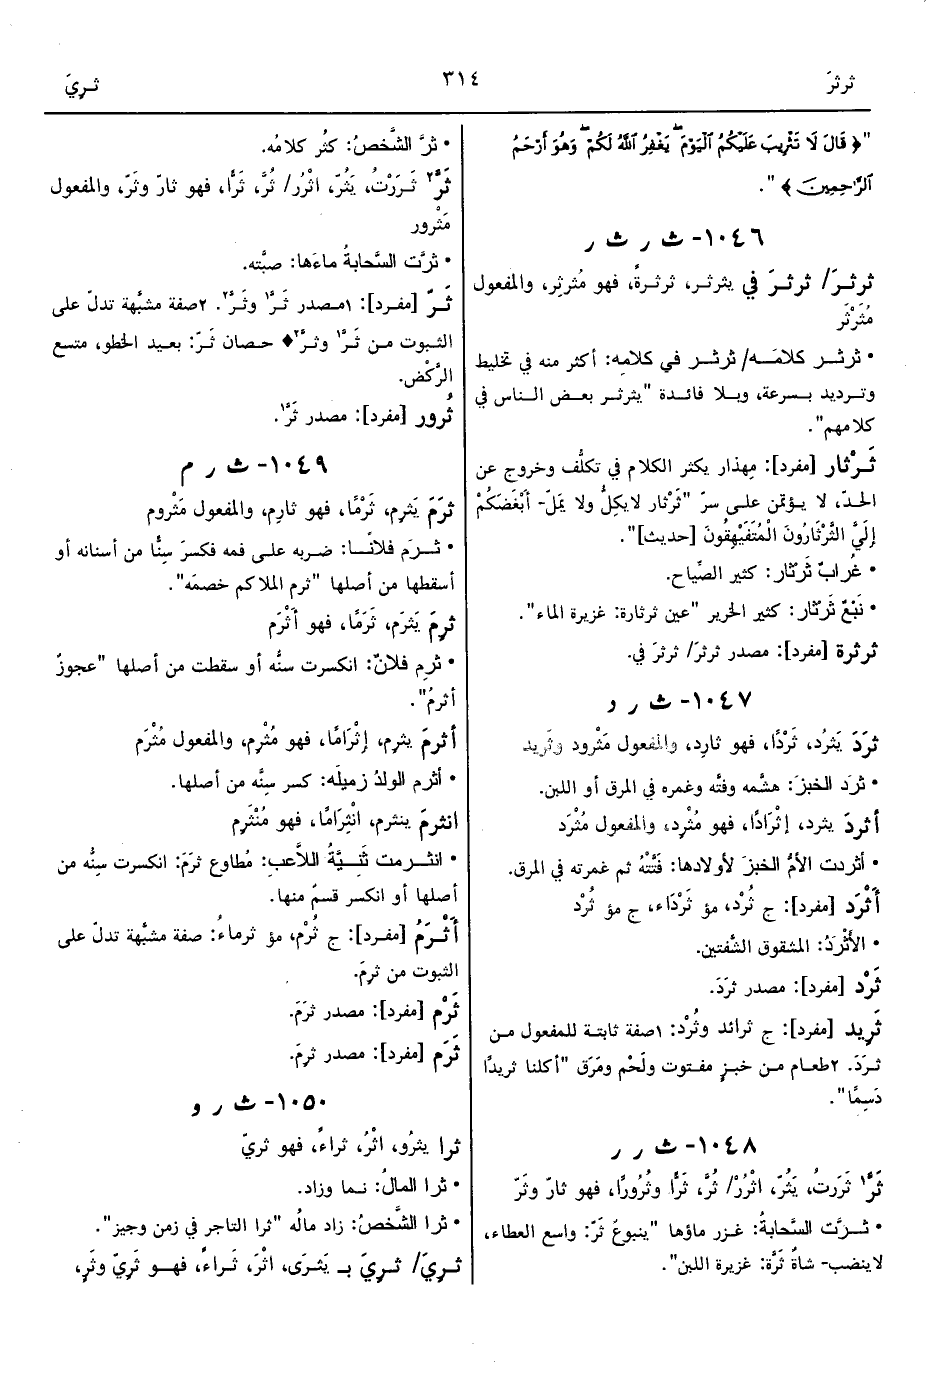 ثرثرَ ٣١٤ ثـرِيَ
"﴿ قَالَ لَا تَثْرِيبَ عَلَيْكُمُ ٱلْيَوْمَ يَغْفِرُ ٱللَّهُ لَكُمْ وَهُوَ أَرْحَمُ
ٱلرَّاحِمِينَ ﴾".
١٠٤٦- ث ر ث ر
ثرثرَ/ ثرثرَ في يثرثر، ثرثرةً، فهو مُثرثِر، والمفعول
مُثَرْثَر
• ثرثـر كلامَـه/ ثرثـر في كلامِه: أكثر منه في تخليط
وتـرديد بـسرعة، وبـلا فائدة "يثرثر بعض الـناس في
كلامهم".
ثَـرْثار [مفرد]: مِهذار يكثر الكلام في تكلُّف وخروج عن
الحـدّ، لا يـؤتمن علـى سـرّ "ثَرْثار لايكِلُّ ولا يَمَلّ- أَبْغَضُكُمْ
إِلَيَّ الثَّرْثَارُونَ الْمُتَفَيْهِقُونَ [حديث]".
• غُرابٌ ثَرْثار: كثير الصِّياح.
• نَبْعٌ ثَرْثار: كثير الخرير "عين ثرثارة: غزيرة الماء".
ثرثرة [مفرد]: مصدر ثرثرَ/ ثرثرَ في.
١٠٤٧- ث ر د
ثرَدَ يَثرُد، ثَرْدًا، فهو ثارِد، والمفعول مَثْرود وثَريد
• ثرَد الخبزَ: هشَّمه وفتَّه وغمره في المرق أو اللبن.
أثردَ يثرد، إثْرادًا، فهو مُثْرِد، والمفعول مُثْرَد
• أثردت الأمُّ الخبزَ لأولادها: فَتَّتْهُ ثم غمرته في المرق.
أَثْرَد [مفرد]: ج ثُرْد، مؤ ثَرْدَاء، ج مؤ ثُرْد
• الأَثْرَدُ: المشقوق الشَّفتين.
ثَرْد [مفرد]: مصدر ثرَدَ.
ثَريد [مفرد]: ج ثرائد وثُرْد: ١صفة ثابتـة للمفعول مـن
ثـرَدَ. ٢طعـام مـن خبـزٍ مفـتوت ولَحْم ومَرَق "أكلنا ثريدًا
دَسِمًا".
١٠٤٨- ث ر ر
ثَرَّ١ ثَرَرتُ، يَثُرّ، اثْرُرْ/ ثُرَّ، ثَرًّا وثُرُورًا، فهو ثارّ وثَرّ
• ثـرَّت السَّحابةُ: غـزر ماؤها "ينبوعٌ ثَرّ: واسع العطاء،
لاينضب- شاةٌ ثَرَّة: غزيرة اللبن".
• ثرَّ الشَّخصُ: كثُر كلامُه.
ثَرَّ٢ ثَـرَرْتُ، يَثُرّ، اثْرُر/ ثُرَّ، ثَرًّا، فهو ثارّ وثَرّ، والمفعول
مَثْرور
• ثرَّت السَّحابةُ ماءَها: صبَّته.
ثَـرّ [مفـرد]: ١مـصدر ثَـرَّ١ وثَـرَّ٢. ٢صفة مشبَّهة تدلّ على
الثـبوت مـن ثَـرَّ١ وثـرَّ٢♦ حـصان ثَـرّ: بعـيد الخطو، متسع
الرَّكْض.
ثُرور [مفرد]: مصدر ثَرَّ١.
١٠٤٩- ث ر م
ثرَمَ يَثرِم، ثَرْمًا، فهو ثارِم، والمفعول مَثْروم
• ثـرَم فلانًـا: ضـربه علـى فمه فكسرَ سِنًّا من أسنانه أو
أسقطها من أصلها "ثرم الملاكم خصمَه".
ثرِمَ يَثرَم، ثَرَمًا، فهو أَثْرَم
• ثرِم فلانٌ: انكسرت سنُّه أو سقطت من أصلها "عجوزٌ
أثرمُ".
أثرمَ يثرِم، إثْرامًا، فهو مُثْرِم، والمفعول مُثْرَم
• أثرم الولدُ زميلَه: كسر سِنَّه من أصلها.
انثرمَ ينثرم، انْثِرامًا، فهو مُنْثَرِم
• انثـرمت ثَنِيَّةُ اللاَّعب: مُطاوع ثرَمَ: انكسرت سِنُّه من
أصلها أو انكسر قسمٌ منها.
أَثْـرَمُ [مفـرد]: ج ثُرْم، مؤ ثرماءُ: صفة مشبَّهة تدلّ على
الثبوت من ثرِمَ.
ثَرْم [مفرد]: مصدر ثرَمَ.
ثَرَم [مفرد]: مصدر ثرِمَ.
١٠٥٠- ث ر و
ثرا يثرُو، اثْرُ، ثراءً، فهو ثريّ
• ثرا المالُ: نما وزاد.
• ثرا الشَّخصُ: زاد مالُه "ثرا التاجر في زمن وجيز".
ثـرِيَ/ ثـرِيَ بـ يَثـرَى، اثْرَ، ثَـراءً، فهـو ثَرِيّ وثَرٍ،